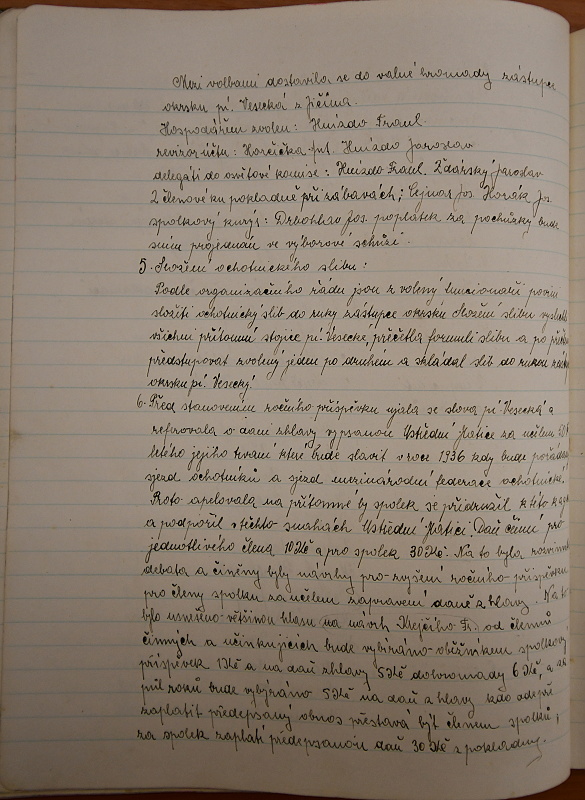 Mezi volbami dostavila se do valné hromady zástupce
okrsku pí. Vesecká z Jičína.
Hospodářem zvolen: Hnízdo Frant.
revizor účtu: Horčička Ant. Hnízdo Jaroslav
delegáti do osvětové komise: Hnízdo Frant. Žďárský Jaroslav
2 členové ku pokladně při zábavách; Cejnar Jos. Horák Jos.
spolkový kurýr: Drbohlav Jos. poplatek za pochůzky bude
s ním projednán ve výborové schůzi.
5. Složení ochotnického slibu:
Podle organizačního řádu jsou zvolený funcionáři povini
složiti ochotnický slib do ruky zástupce okrsku složení slibu
všichni přítomní stojíce pí. Vesecké, přečetla formuli slibu a po
předstupovat zvolený jeden po druhém a skládal slib do rukou
okrsku pí. Vesecký.
6. Před stanovením ročního příspěvku ujala se slova pí. Vesecká a
referovala o dani z hlavy vypsanou Ústřední Matice za účelem
letého jejího trvání které bude slavit v roce 1936 kdy bude
sjezd ochotníků a sjezd mezinárodní federace ochotnické.
Proto apelovala na přítomné by spolek se přidružil k této
a podpořil v těchto snahách Ústřední Matici. Daň činní pro
jednotlivého člena 10 Kč a pro spolek 30 Kč. Na to byla
debata a činěny byly návrhy pro zvýšení ročního příspěvku
pro členy spolku za účelem zapravení daně z hlavy. Na to
bylo usneseno většinou hlasu na návrh Krejčího Fr. od členů
činných a účinkujících bude vybíráno oběžníkem spolkový
příspěvek 1 Kč a na daň z hlavy 5 Kč dohromady 6 Kč, a za
půl roků bude vybýráno 5 Kč na daň z hlavy kdo odepře
zaplatit předepsaný obnos přestává být členem spolku,
za spolek zaplatí předepsanou daň 30 Kč z pokladny.